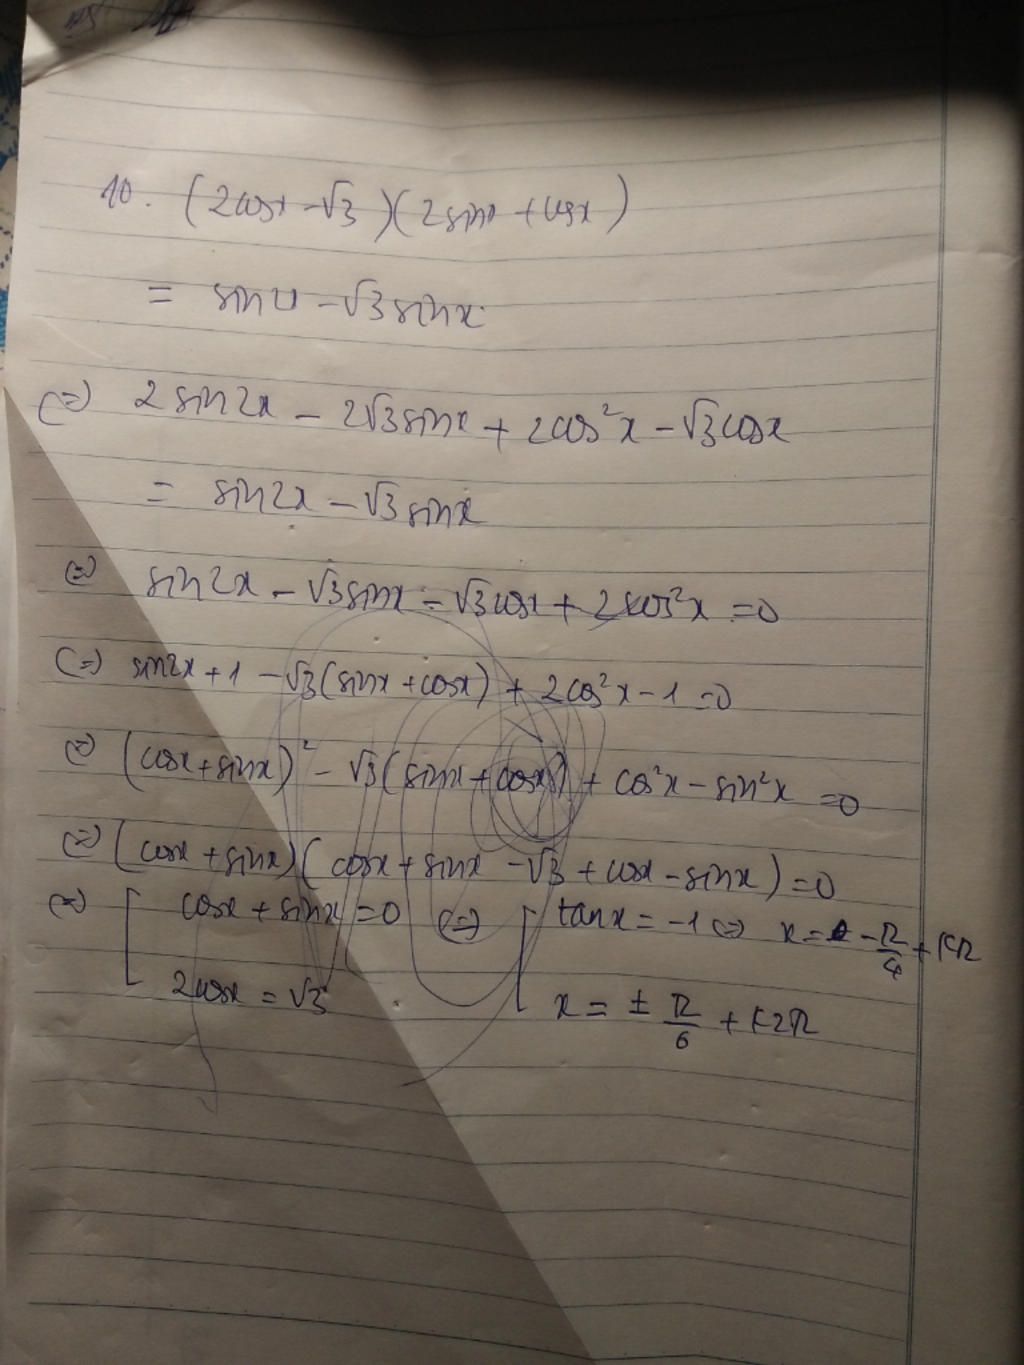 10. (2cosx - √3)(2sinx + cosx)
= sin2x - √3 sinx
(=) 2sin2x - 2√3sinx + 2cos²x - √3cosx
= sin2x - √3 sinx
(=) sin2x - √3sinx - √3cosx + 2cos²x = 0
(=) sin2x + 1 - √3(sinx + cosx) + 2cos²x - 1 = 0
(=) (cosx + sinx)² - √3(sinx + cosx) + cos²x - sin²x = 0
(=) (cosx + sinx)(cosx + sinx - √3 + cosx - sinx) = 0
(=) [ cosx + sinx = 0 (=) [ tanx = -1 (=) x = -π/4 + kπ
2cosx = √3 x = ± π/6 + k2π